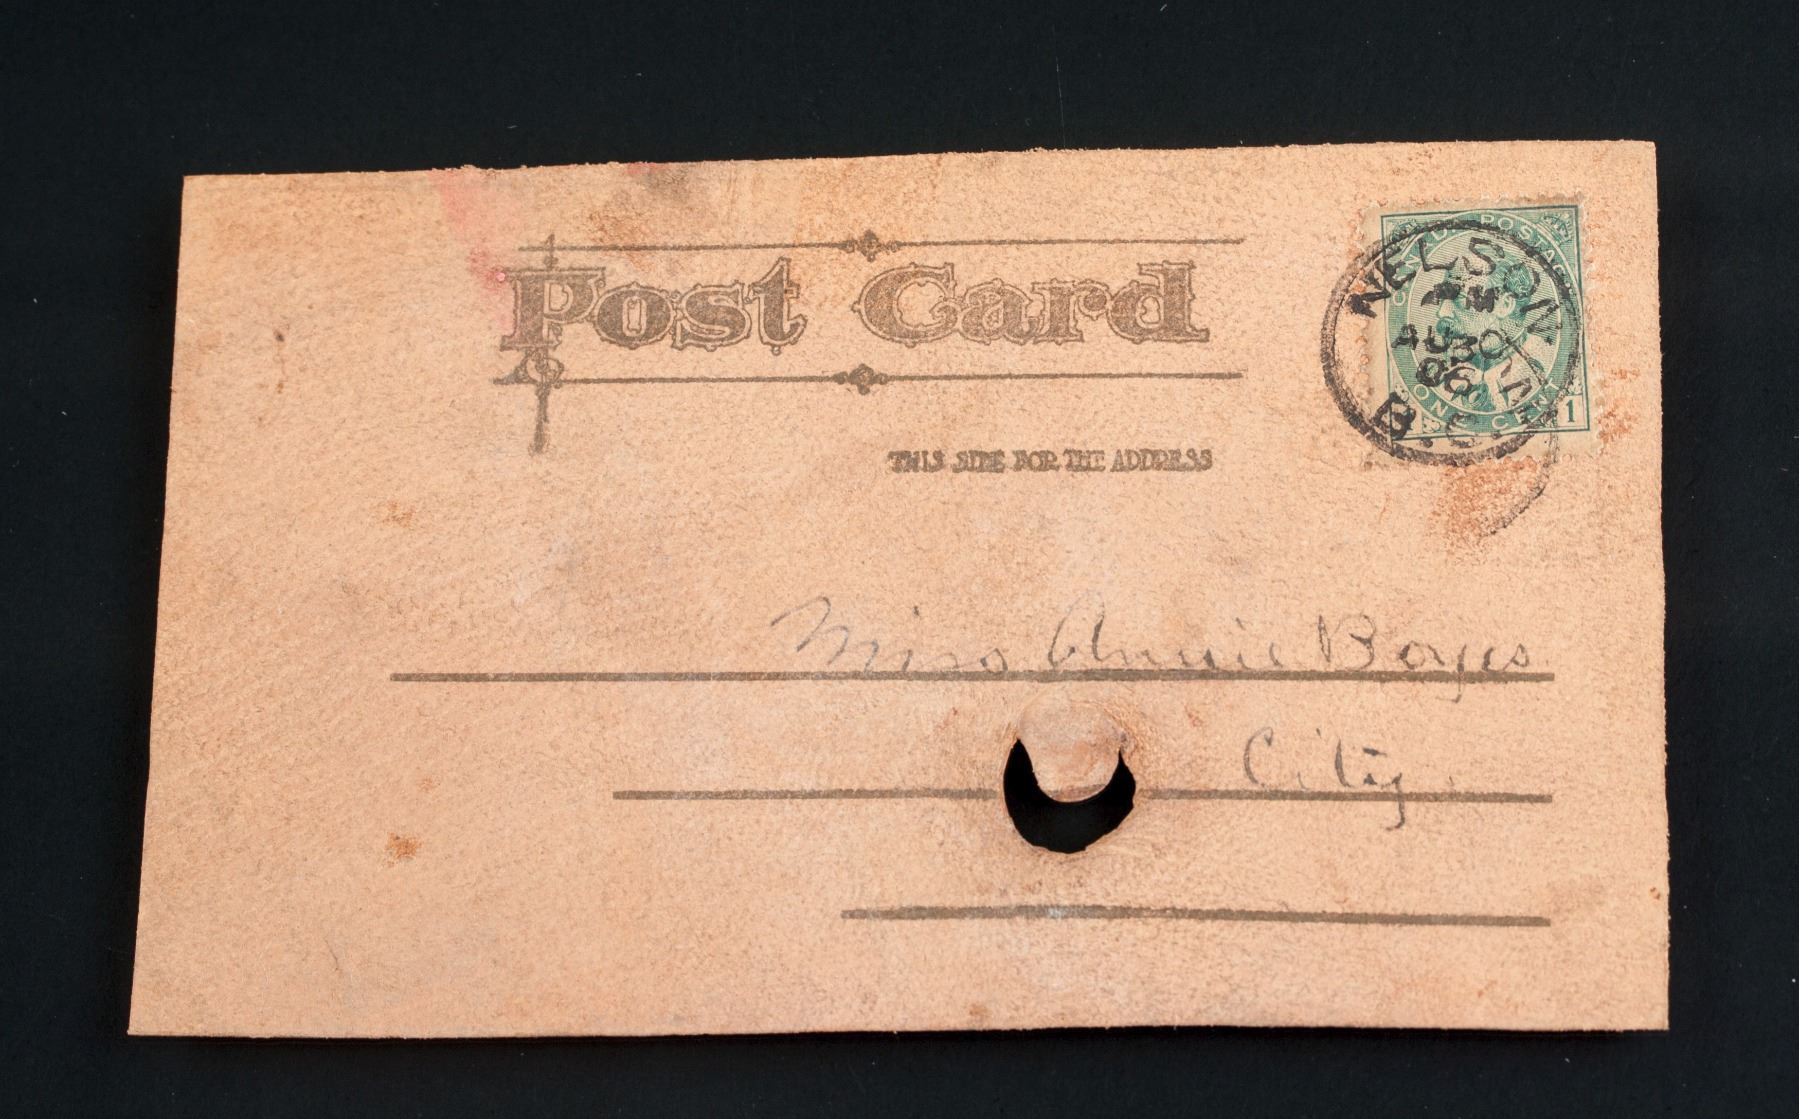 Post Card
CANADA POSTAGE
NELSON
PM
AU 30
06
B.C.
ONE CENT
1
THIS SIDE FOR THE ADDRESS
Miss Annie Boyes
City